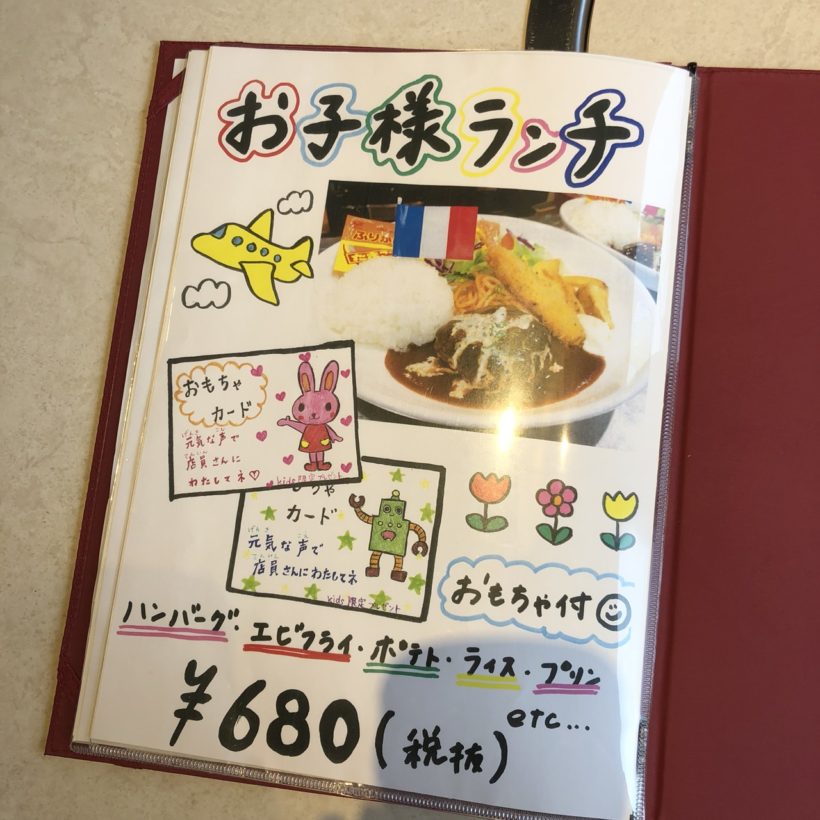 お子様ランチ
おもちゃ
カード
げんき こえ
元気な声で
てんいん
店員さんに
わたしてネ♡
kids限定プレゼント
ちゃ
カード
げんき こえ
元気な声で
てんいん
店員さんにわたしてネ
kids限定プレゼント
おもちゃ付☺
ハンバーグ・エビフライ・ポテト・ライス・プリン
etc...
¥680(税抜)